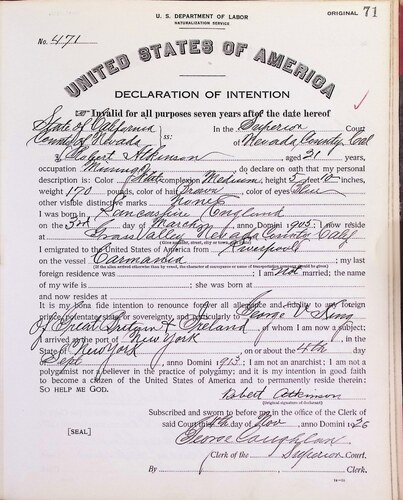 U. S. DEPARTMENT OF LABOR
NATURALIZATION SERVICE
ORIGINAL 71
No. 471
UNITED STATES OF AMERICA
DECLARATION OF INTENTION
Invalid for all purposes seven years after the date hereof
State of California
County of Nevada ss: In the Superior Court of Nevada County, Cal
I, Robert Atkinson aged 31 years,
occupation Mining, do declare on oath that my personal
description is: Color White, complexion Medium, height 5 feet 10 inches,
weight 170 pounds, color of hair Brown, color of eyes Blue
other visible distinctive marks None
I was born in Lancashire England
on the 3rd day of March, anno Domini 1905; I now reside
at Grass Valley Nevada County Calif
I emigrated to the United States of America from Liverpool
on the vessel Carmania; my last
foreign residence was ; I am not married; the name
of my wife is ; she was born at
and now resides at
It is my bona fide intention to renounce forever all allegiance and fidelity to any foreign
prince, potentate, state, or sovereignty, and particularly to George V King
Of Great Britain & Ireland, of whom I am now a subject;
I arrived at the port of New York, in the
State of New York, on or about the 4th day
Sept, anno Domini 1913; I am not an anarchist; I am not a
polygamist nor a believer in the practice of polygamy; and it is my intention in good faith
to become a citizen of the United States of America and to permanently reside therein:
SO HELP ME GOD.
Robert Atkinson
(Original signature of declarant)
Subscribed and sworn to before me in the office of the Clerk of
[SEAL] said Court this day of Nov anno Domini 1926
George Coughlan
Clerk of the Superior Court.
By , Clerk.